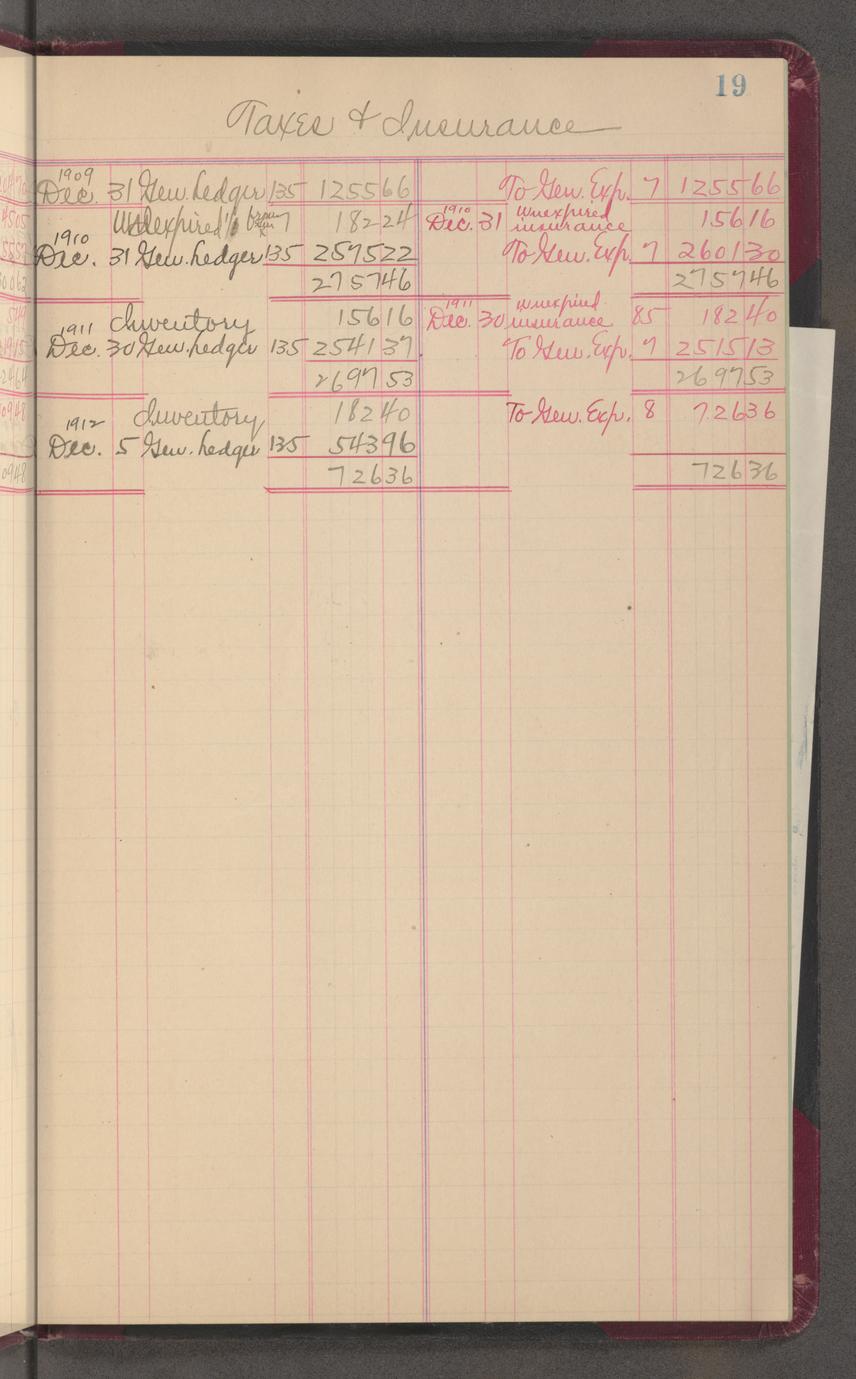 19
Taxes & Insurance
1909
Dec. 31 Gen. Ledger 135 1255 66 To Gen. Exp. 7 1255 66
Unexpired 7 182 24 1910 Dec. 31 unexpired insurance 156 16
1910
Dec. 31 Gen. Ledger 135 2575 22 To Gen. Exp. 7 2601 30
2757 46 2757 46
Inventory 156 16 1911 Dec. 30 unexpired insurance 85 182 40
1911
Dec. 30 Gen. Ledger 135 2541 37 To Gen. Exp. 7 2515 13
2697 53 2697 53
Inventory 182 40 To Gen. Exp. 8 726 36
1912
Dec. 5 Gen. Ledger 135 543 96
726 36 726 36